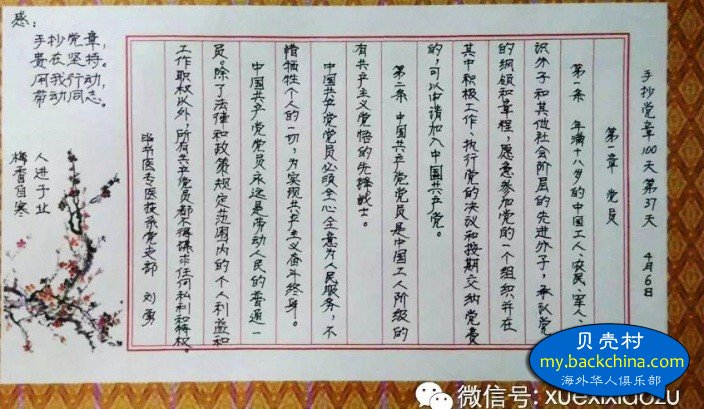 手抄党章100天第37天 4月6日
第一章 党员
第一条 年满十八岁的中国工人、农民、军人、
识分子和其他社会阶层的先进分子，承认党
的纲领和章程，愿意参加党的一个组织并在
其中积极工作、执行党的决议和按期交纳党费
的，可以申请加入中国共产党。
第二条 中国共产党党员是中国工人阶级的
有共产主义觉悟的先锋战士。
中国共产党党员必须全心全意为人民服务，不
惜牺牲个人的一切，为实现共产主义奋斗终身。
中国共产党党员永远是劳动人民的普通一
员。除了法律和政策规定范围内的个人利益和
工作职权以外，所有共产党员都不得谋求任何私利和特权。
毕节医专医技系党支部 刘勇
感：
手抄党章，
贵在坚持。
用我行动，
带动同志。
人进于业
梅香自寒
贝壳村
my.backchina.com
海外华人俱乐部
微信号: xuexixiaozu